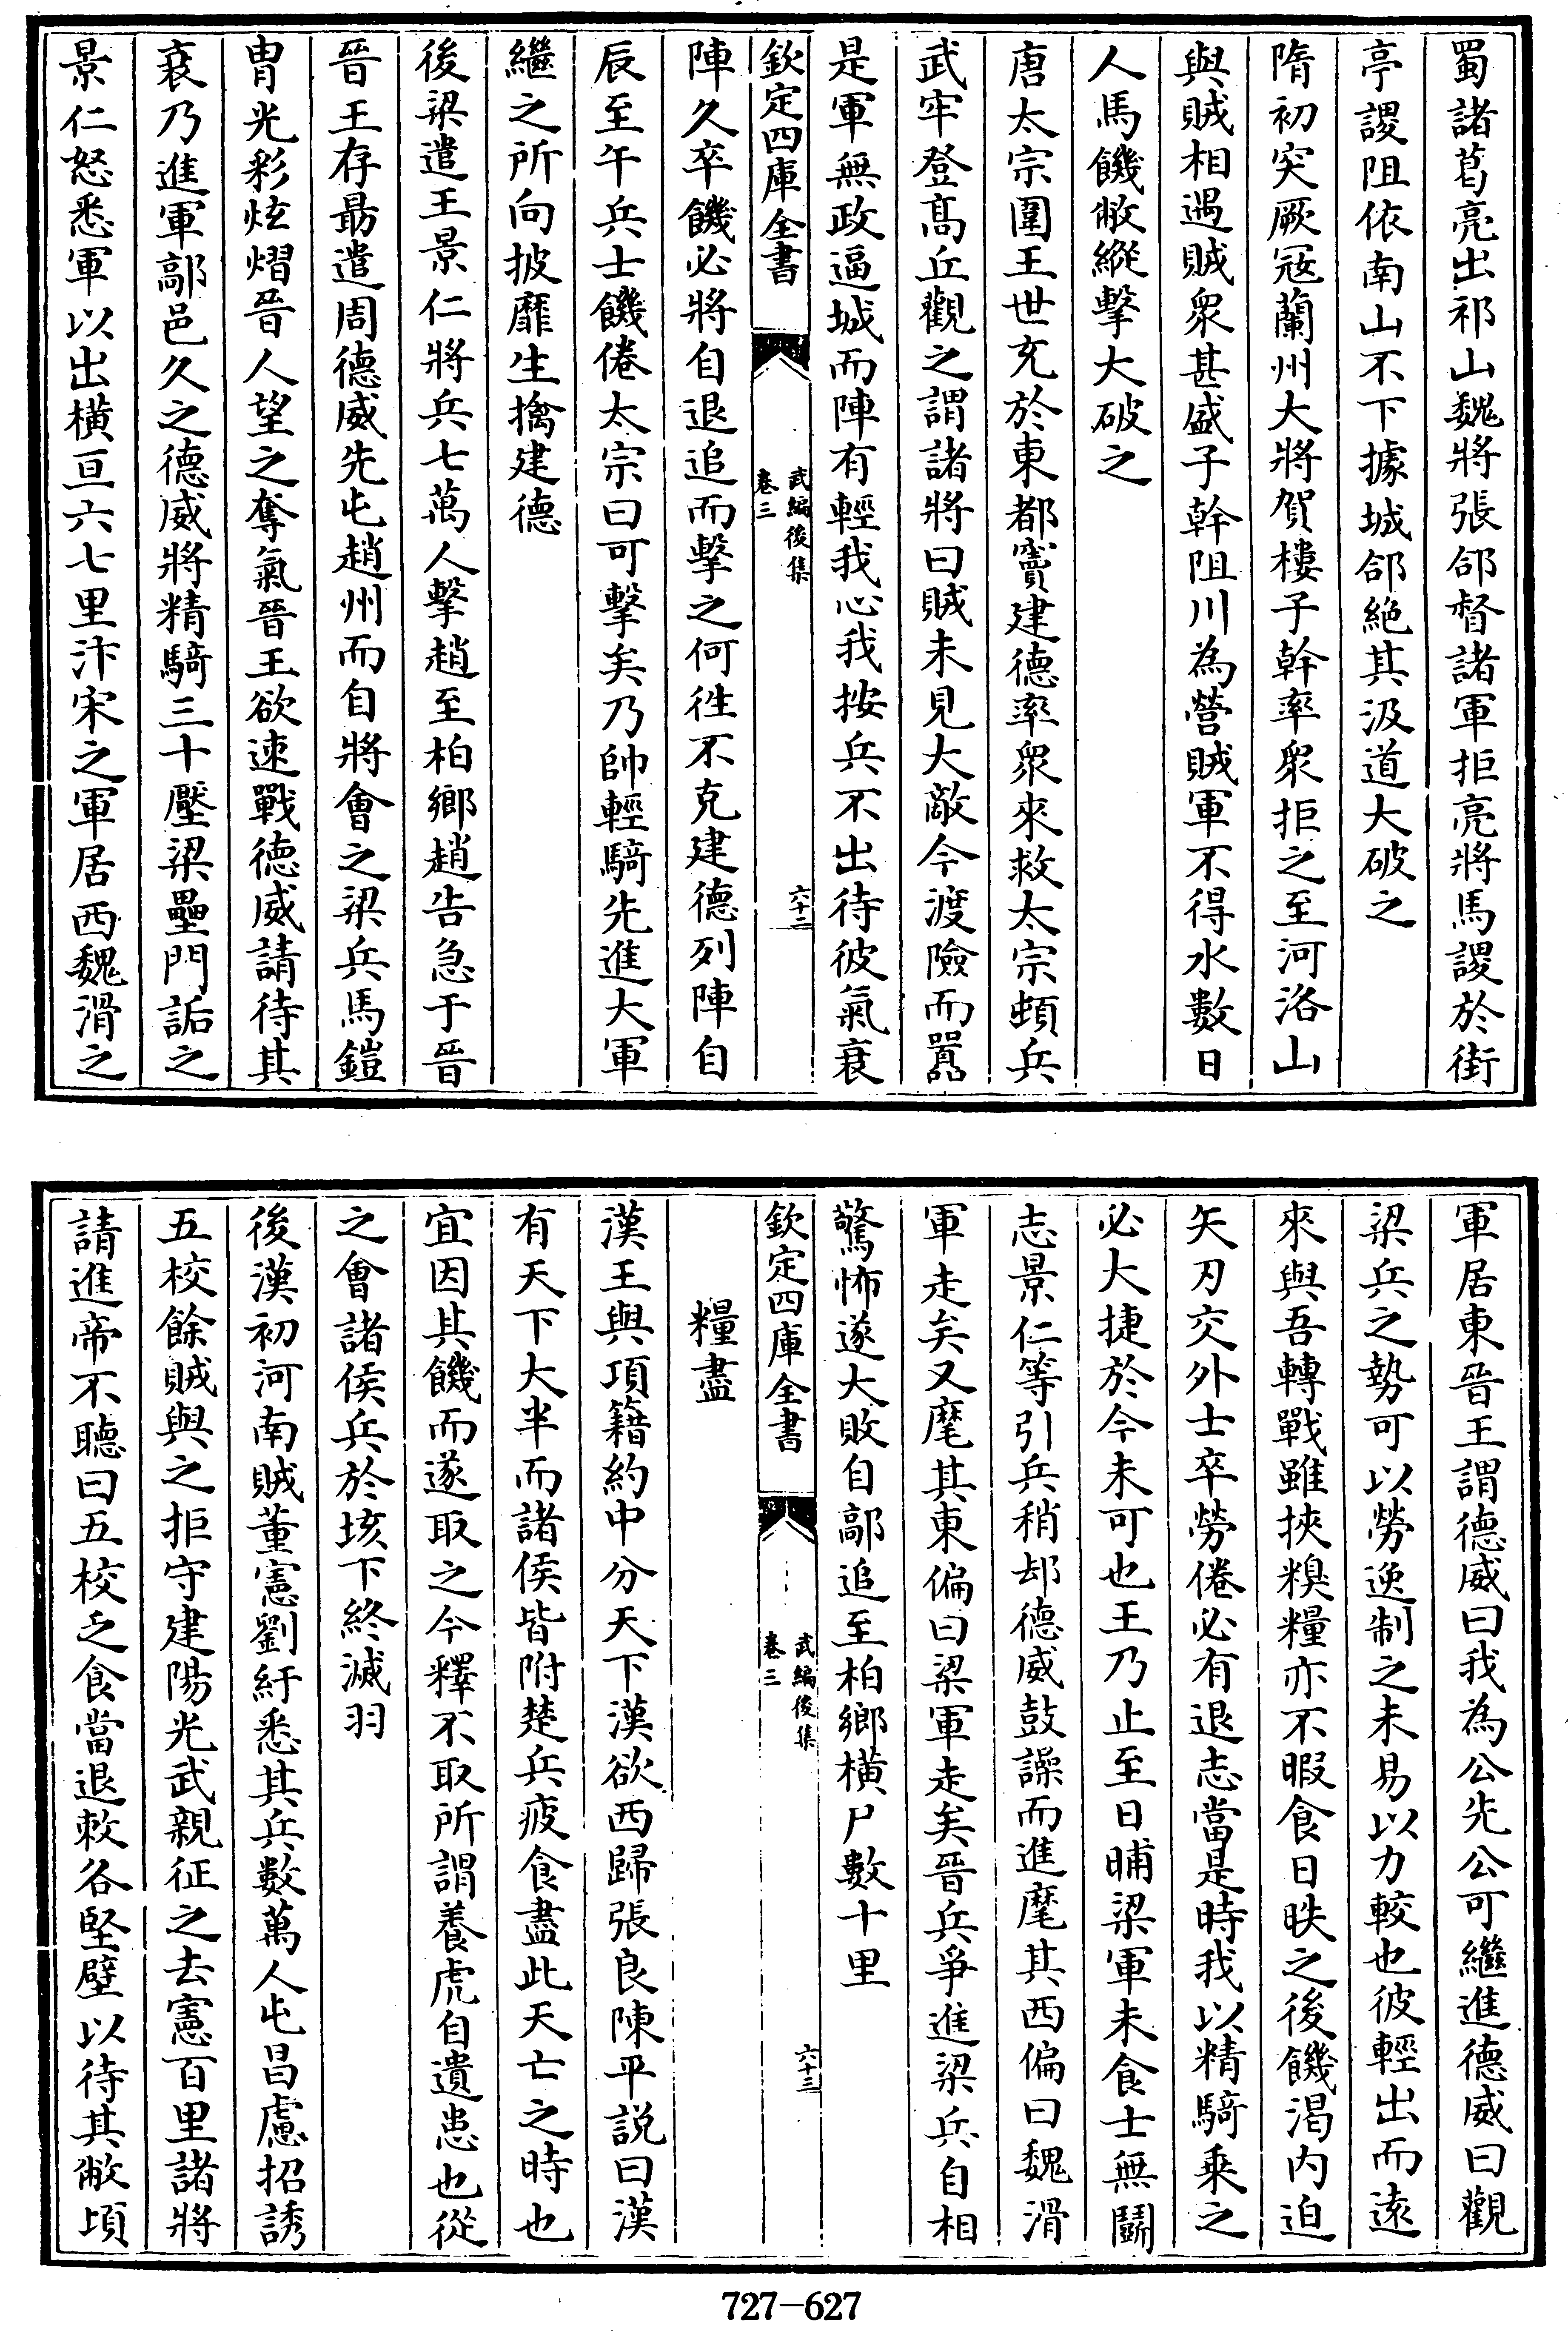 蜀諸葛亮出祁山魏將張郃督諸軍拒亮將馬謖於街
亭謖阻依南山不下據城郃絶其汲道大破之
隋初突厥冦蘭州大將賀樓子幹率衆拒之至河洛山
與賊相遇賊衆甚盛子幹阻川為營賊軍不得水數日
人馬饑敝縱擊大破之
唐太宗圍王世充於東都竇建德率衆來救太宗頓兵
武牢登髙丘觀之謂諸將曰賊未見大敵今渡險而嚻
是軍無政逼城而陣有輕我心我按兵不出待彼氣衰
欽定四庫全書
武編後集
卷三
六十三
陣久卒饑必將自退追而擊之何徃不克建德列陣自
辰至午兵士饑倦太宗曰可擊矣乃帥輕騎先進大軍
繼之所向披靡生擒建德
後梁遣王景仁將兵七萬人擊趙至柏鄉趙告急于晉
晉王存勗遣周德威先屯趙州而自將會之梁兵馬鎧
胄光彩炫熠晉人望之奪氣晉王欲速戰德威請待其
衰乃進軍鄗邑久之德威將精騎三十壓梁壘門詬之
景仁怒悉軍以出橫亘六七里汴宋之軍居西魏滑之
軍居東晉王謂德威曰我為公先公可繼進德威曰觀
梁兵之勢可以勞逸制之未易以力較也彼輕出而逺
來與吾轉戰雖挾糗糧亦不暇食日昳之後饑渇内迫
矢刃交外士卒勞倦必有退志當是時我以精騎乗之
必大捷於今未可也王乃止至日晡梁軍未食士無鬭
志景仁等引兵稍却德威鼓譟而進麾其西偏曰魏滑
軍走矣又麾其東偏曰梁軍走矣晉兵爭進梁兵自相
驚怖遂大敗自鄗追至柏鄉橫尸數十里
欽定四庫全書
武編後集
卷三
六十三
糧盡
漢王與項籍約中分天下漢欲西歸張良陳平説曰漢
有天下大半而諸侯皆附楚兵疲食盡此天亡之時也
宜因其饑而遂取之今釋不取所謂養虎自遺患也從
之會諸侯兵於垓下終滅羽
後漢初河南賊董憲劉紆悉其兵數萬人屯昌慮招誘
五校餘賊與之拒守建陽光武親征之去憲百里諸將
請進帝不聽曰五校乏食當退敕各堅壁以待其敝頃
727-627